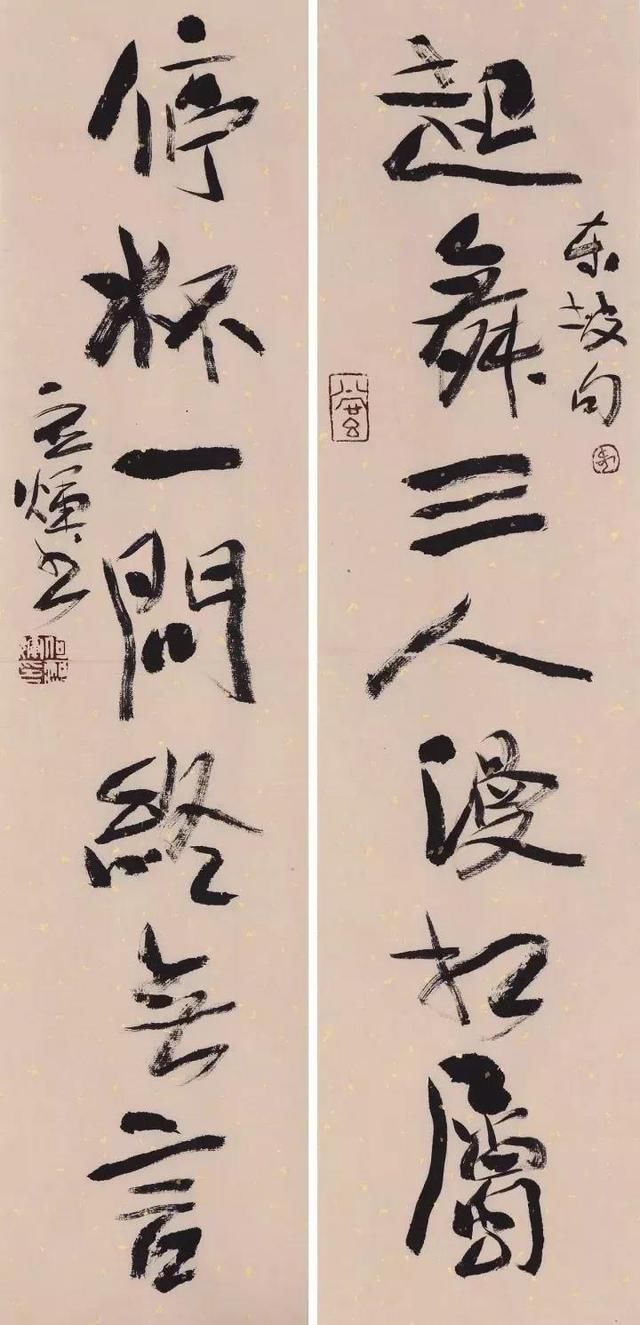 起舞三人漫相屬
東坡句
停杯一問終無言